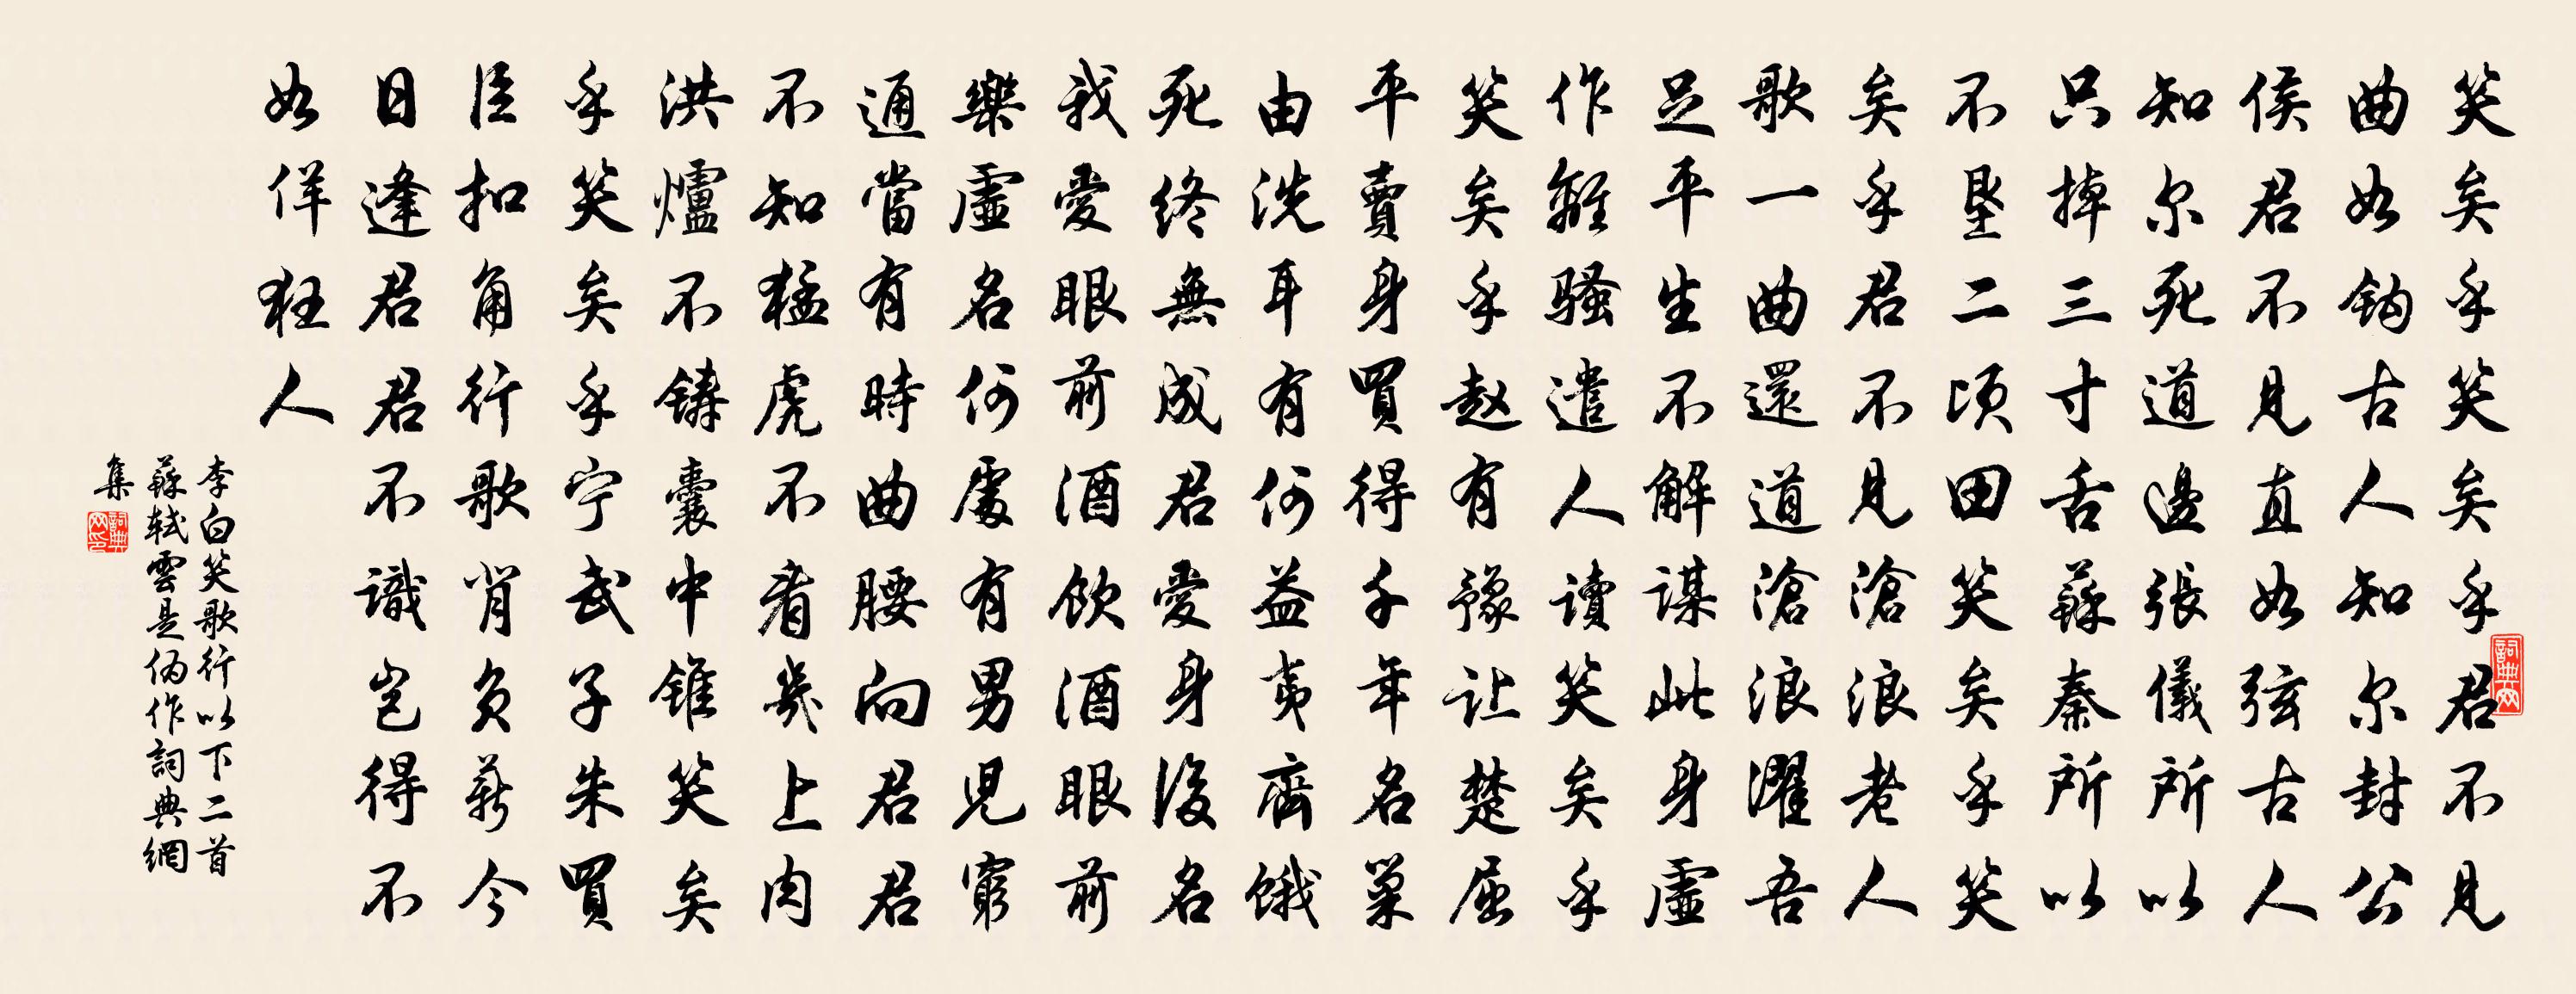 笑矣乎笑矣乎君不見
曲如鈎古人知尔封公
侯君不見直如弦古人
知尔死道邊張儀所以
只掉三寸舌蘇秦所以
不垦二顷田笑矣乎笑
矣乎君不見滄浪老人
歌一曲還道滄浪濯吾
足平生不解謀此身虛
作離骚遣人讀笑矣乎
笑矣乎赵有豫让楚屈
平賣身買得千年名巢
由洗耳有何益夷齊餓
死終無成君愛身後名
我愛眼前酒飲酒眼前
樂虛名何處有男児窮
通當有時曲腰向君君
不知猛虎不看幾上肉
洪爐不鑄囊中錐笑矣
乎笑矣乎宁武子朱買
臣扣角行歌背負薪今
日逢君君不識豈得不
如佯狂人
李白笑歌行以下二首
蘇軾雲是偽作詞典網
集
詞典网
詞典网印